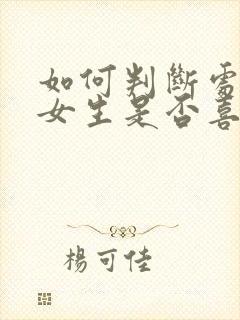 如何判斷需
女生是否喜
楊可佳